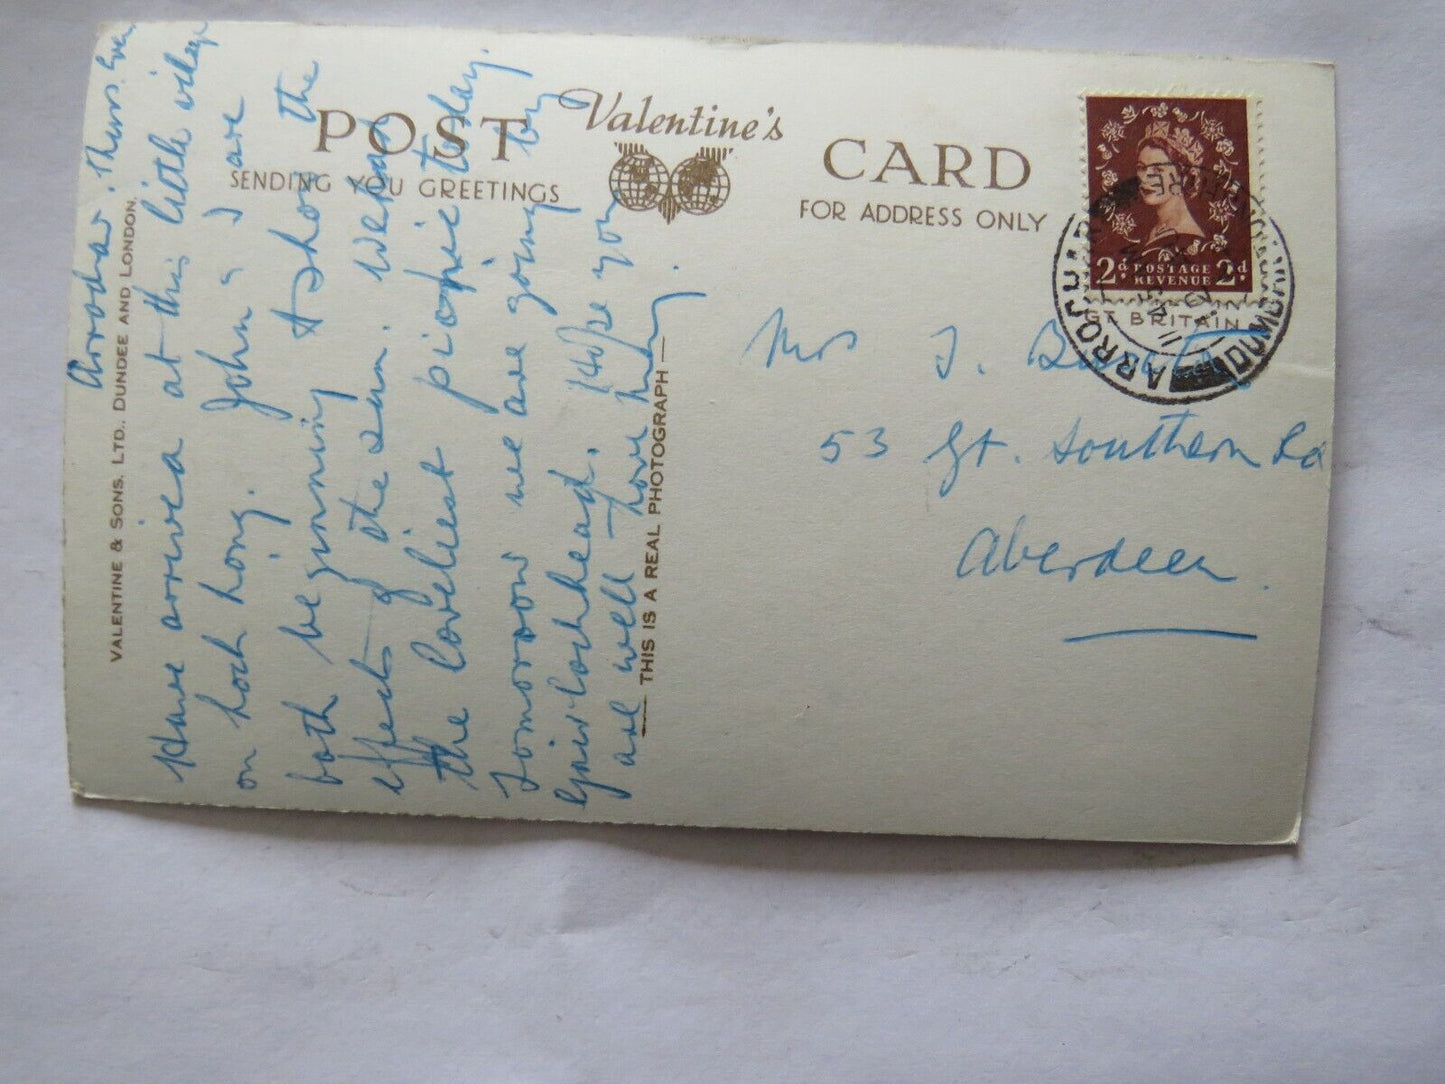 POST Valentine's CARD
SENDING YOU GREETINGS
FOR ADDRESS ONLY
VALENTINE & SONS. LTD., DUNDEE AND LONDON.
THIS IS A REAL PHOTOGRAPH
Arrochar. Thurs. Even
Have arrived at this little village
on Loch Long. John & I are
both beginning to show the
effects of the sun. We had
the loveliest picnic today.
Tomorrow we are going by
Gairlochhead. Hope you
are well - love
2d POSTAGE REVENUE 2d
GT BRITAIN
ARROCHAR
DUMBARTONSHIRE
Mrs J.
53 Gt. Southern Rd
Aberdeen.